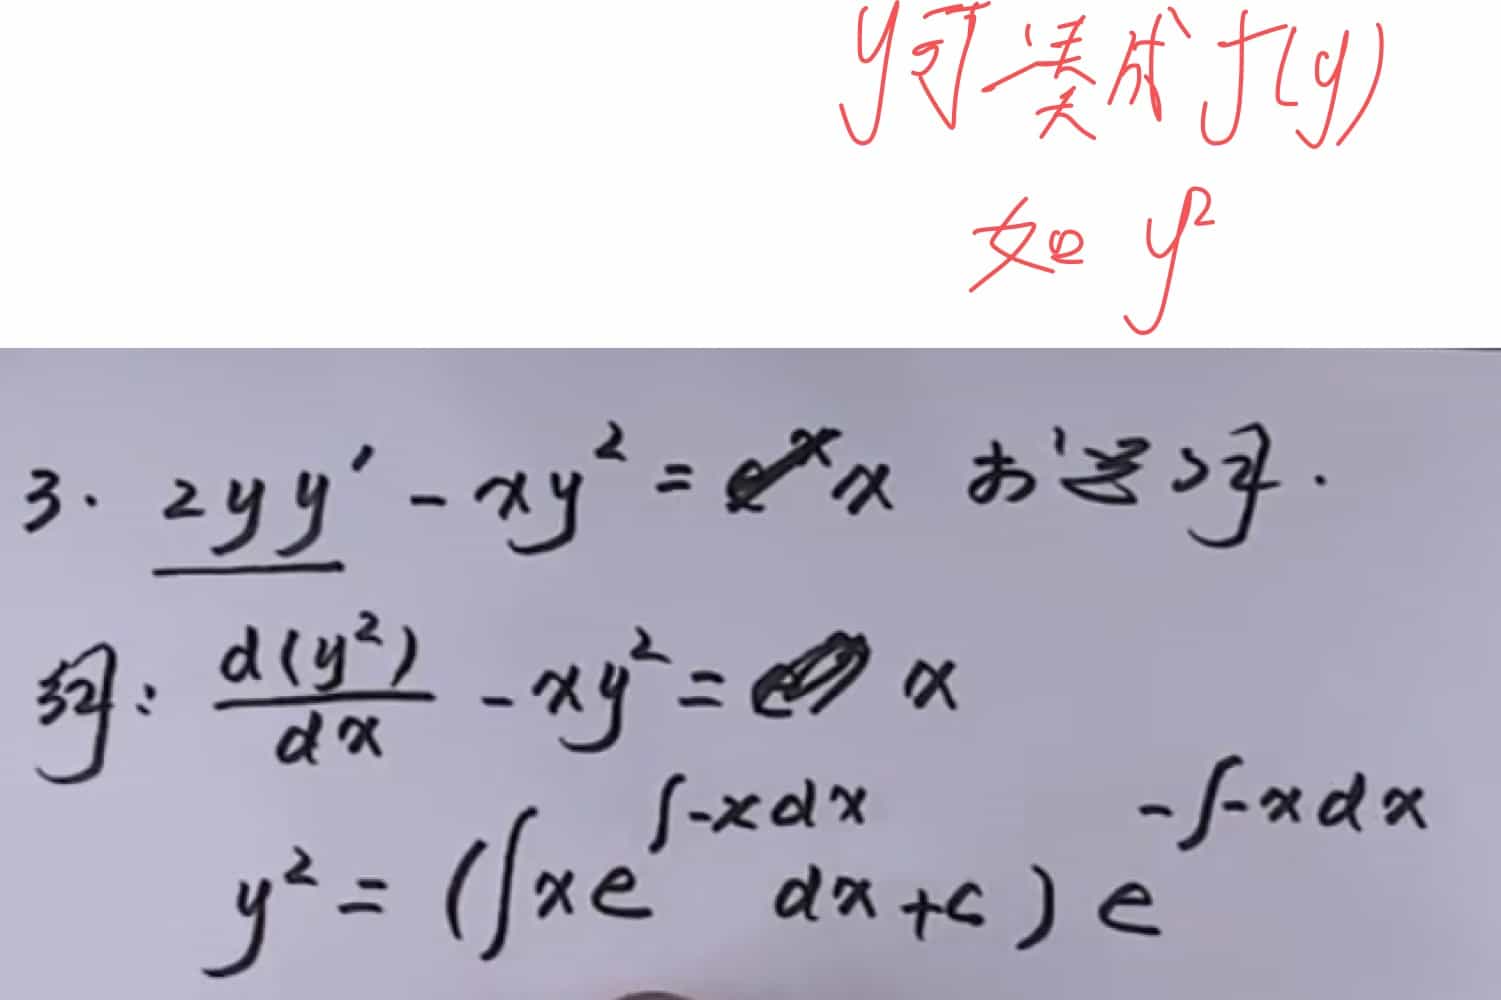 y可凑成f(y)
如 y²
3. 2yy′ - xy² = x 的通解.
解: d(y²)/dx - xy² = x
y² = (∫xe^{∫-xdx} dx+c) e^{-∫-xdx}